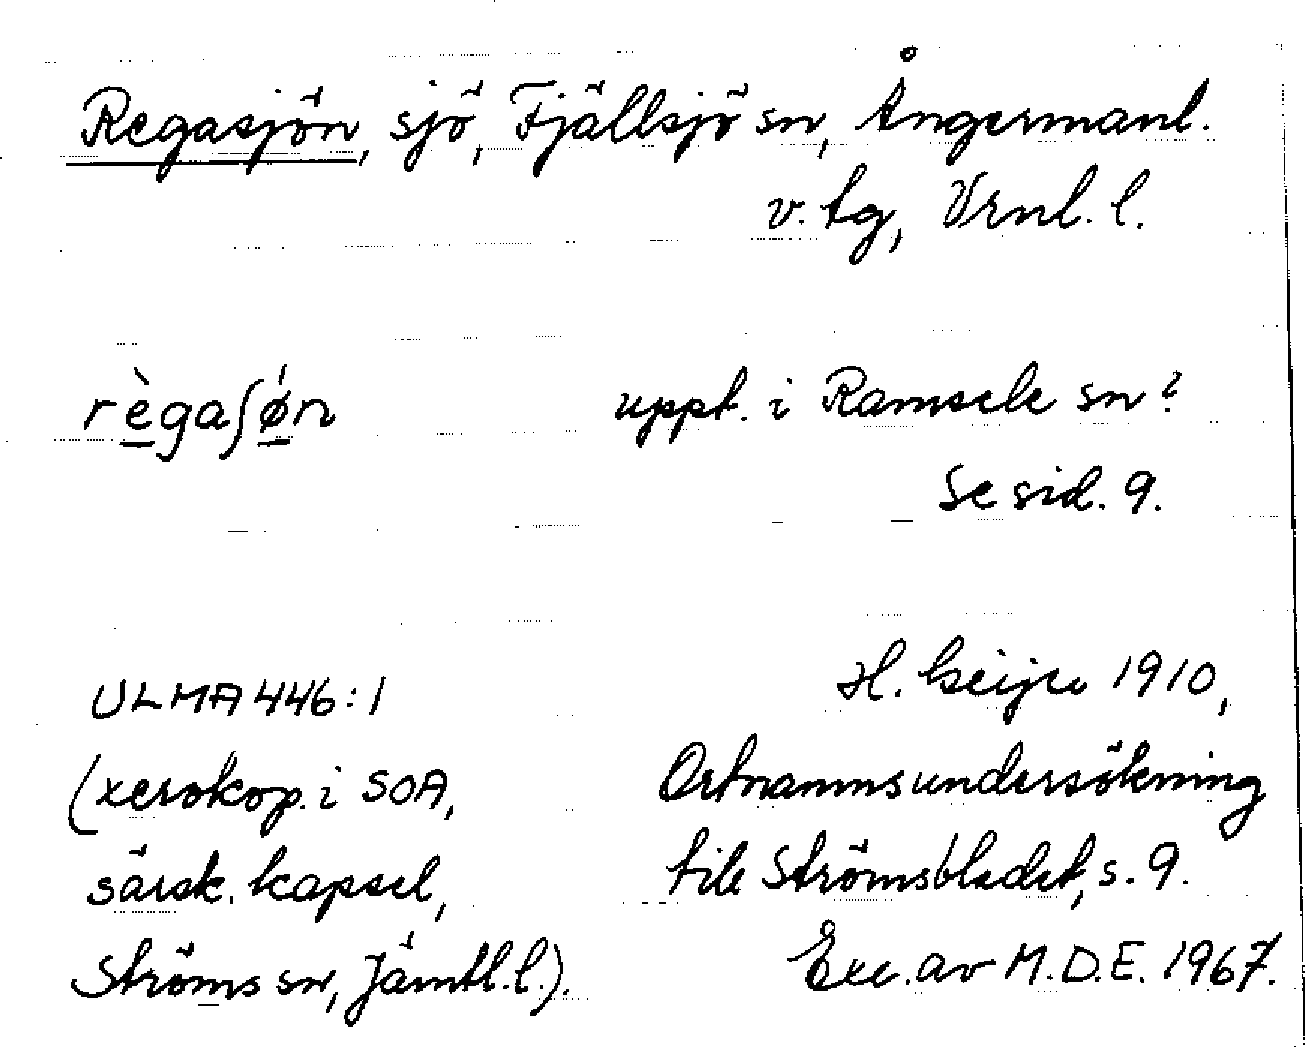 Regasjön, sjö, Fjällsjö sn, Ångermanl.
v. tg, Vrnl. l.
règaʃǿn
uppt. i Ramsele sn?
Se sid. 9.
ULMA 446:1
(xerokop. i SOA,
särsk. kapsel,
Ströms sn, Jämtl. l.).
H. Geijer 1910,
Ortnamnsundersökning
till Strömsbladet, s. 9.
Exc. av M.D.E. 1967.